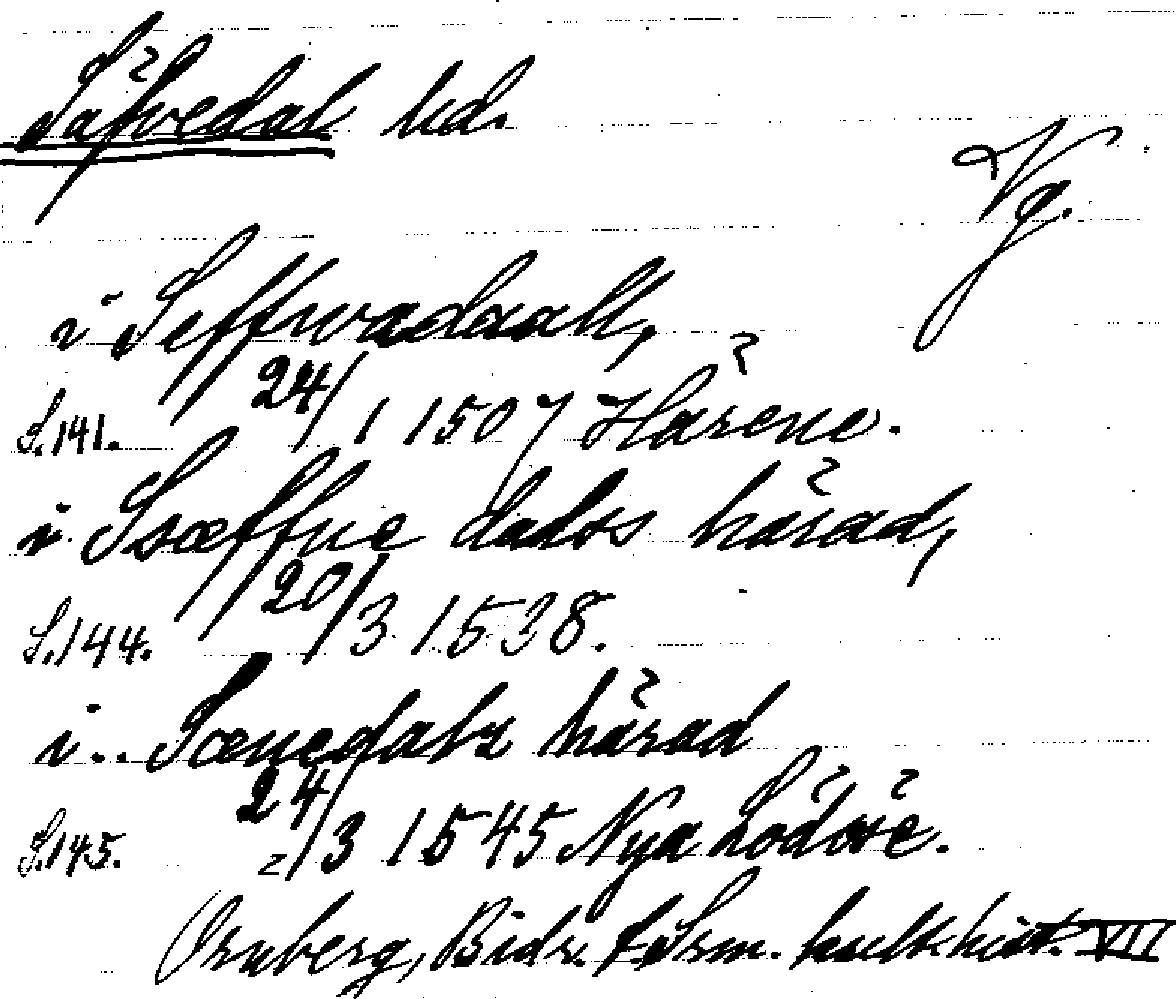 Säfvedal hd.
Vg.
i Seffwadaall,
S.141. 24/1 1507 Härene.
i Sæffue dalss härad,
S.144. 20/3 1538.
i.. Sæuedalz härad
S.145. 24/3 1545 Nya Lödöse.
Ornberg, Bidr. t. Srm. kultkhist. VII